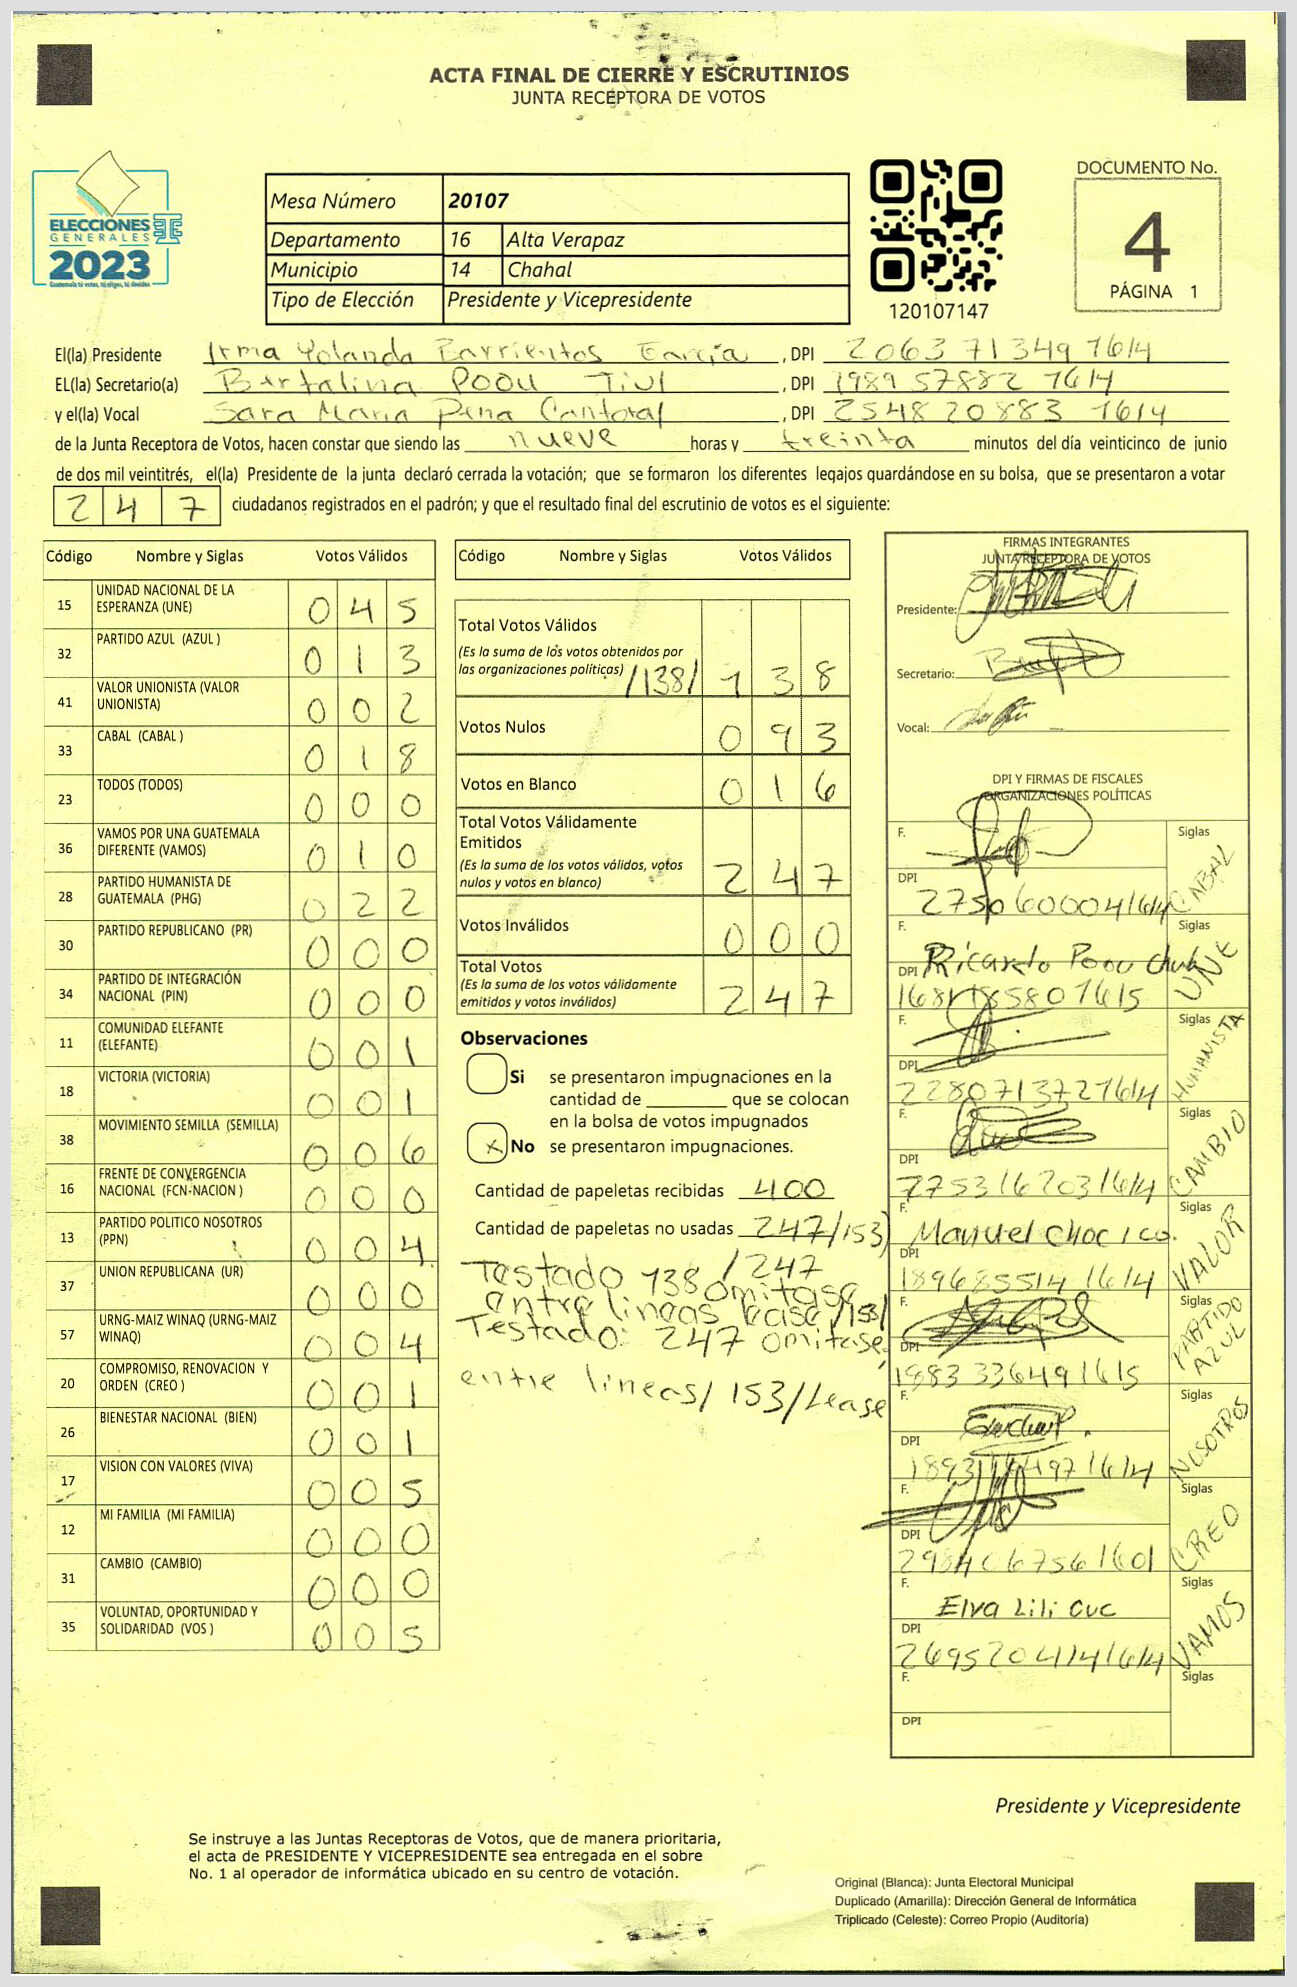 ACTA FINAL DE CIERRE Y ESCRUTINIOS
JUNTA RECEPTORA DE VOTOS
ELECCIONES
GENERALES
2023
Guatemala tú votas, tú eliges, tú decides
Mesa Número 20107
Departamento 16 Alta Verapaz
Municipio 14 Chahal
Tipo de Elección Presidente y Vicepresidente
120107147
DOCUMENTO No.
4
PÁGINA 1
El(la) Presidente Irma Yolanda Barrientos García, DPI 2063 71349 1614
EL(la) Secretario(a) Bertalina Poou Tiul, DPI 1989 57882 1614
y el(la) Vocal Sara Maria Pena Cantoral, DPI 2548 20883 1614
de la Junta Receptora de Votos, hacen constar que siendo las nueve horas y treinta minutos del día veinticinco de junio
de dos mil veintitrés, el(la) Presidente de la junta declaró cerrada la votación; que se formaron los diferentes legajos guardándose en su bolsa, que se presentaron a votar
247 ciudadanos registrados en el padrón; y que el resultado final del escrutinio de votos es el siguiente:
Código Nombre y Siglas Votos Válidos
15 UNIDAD NACIONAL DE LA ESPERANZA (UNE) 045
32 PARTIDO AZUL (AZUL ) 013
41 VALOR UNIONISTA (VALOR UNIONISTA) 002
33 CABAL (CABAL ) 018
23 TODOS (TODOS) 000
36 VAMOS POR UNA GUATEMALA DIFERENTE (VAMOS) 010
28 PARTIDO HUMANISTA DE GUATEMALA (PHG) 022
30 PARTIDO REPUBLICANO (PR) 000
34 PARTIDO DE INTEGRACIÓN NACIONAL (PIN) 000
11 COMUNIDAD ELEFANTE (ELEFANTE) 001
18 VICTORIA (VICTORIA) 001
38 MOVIMIENTO SEMILLA (SEMILLA) 006
16 FRENTE DE CONVERGENCIA NACIONAL (FCN-NACION ) 000
13 PARTIDO POLITICO NOSOTROS (PPN) 004
37 UNION REPUBLICANA (UR) 000
57 URNG-MAIZ WINAQ (URNG-MAIZ WINAQ) 004
20 COMPROMISO, RENOVACION Y ORDEN (CREO ) 001
26 BIENESTAR NACIONAL (BIEN) 001
17 VISION CON VALORES (VIVA) 005
12 MI FAMILIA (MI FAMILIA) 000
31 CAMBIO (CAMBIO) 000
35 VOLUNTAD, OPORTUNIDAD Y SOLIDARIDAD (VOS ) 005
Código Nombre y Siglas Votos Válidos
Total Votos Válidos
(Es la suma de los votos obtenidos por
las organizaciones políticas) /138/ 138
Votos Nulos 093
Votos en Blanco 016
Total Votos Válidamente
Emitidos
(Es la suma de los votos válidos, votos
nulos y votos en blanco) 247
Votos Inválidos 000
Total Votos
(Es la suma de los votos válidamente
emitidos y votos inválidos) 247
Observaciones
Si se presentaron impugnaciones en la
cantidad de ________ que se colocan
en la bolsa de votos impugnados
x No se presentaron impugnaciones.
Cantidad de papeletas recibidas 400
Cantidad de papeletas no usadas 247/153)
Testado 138/247
omitase
entre lineas /153/
Testado: 247 omitase.
entre lineas/153/Lease
FIRMAS INTEGRANTES
JUNTA RECEPTORA DE VOTOS
Presidente:
Secretario:
Vocal:
DPI Y FIRMAS DE FISCALES
ORGANIZACIONES POLÍTICAS
F. Siglas CABAL
DPI 2750600041614
F. Ricardo Poou Chub Siglas UNE
DPI
F. Siglas HUMANISTA
DPI 2280713721614
F. Siglas CAMBIO
DPI
F. Manuel Choc ico. Siglas VALOR
DPI 1896855141614
F. Siglas PARTIDO AZUL
DPI 1983336491615
F. Siglas NOSOTROS
DPI
F. Siglas CREO
DPI 2984067561601
F. Elva Lili Cuc Siglas VAMOS
DPI 2695204141614
F. Siglas
DPI
Presidente y Vicepresidente
Se instruye a las Juntas Receptoras de Votos, que de manera prioritaria,
el acta de PRESIDENTE Y VICEPRESIDENTE sea entregada en el sobre
No. 1 al operador de informática ubicado en su centro de votación.
Original (Blanca): Junta Electoral Municipal
Duplicado (Amarilla): Dirección General de Informática
Triplicado (Celeste): Correo Propio (Auditoría)